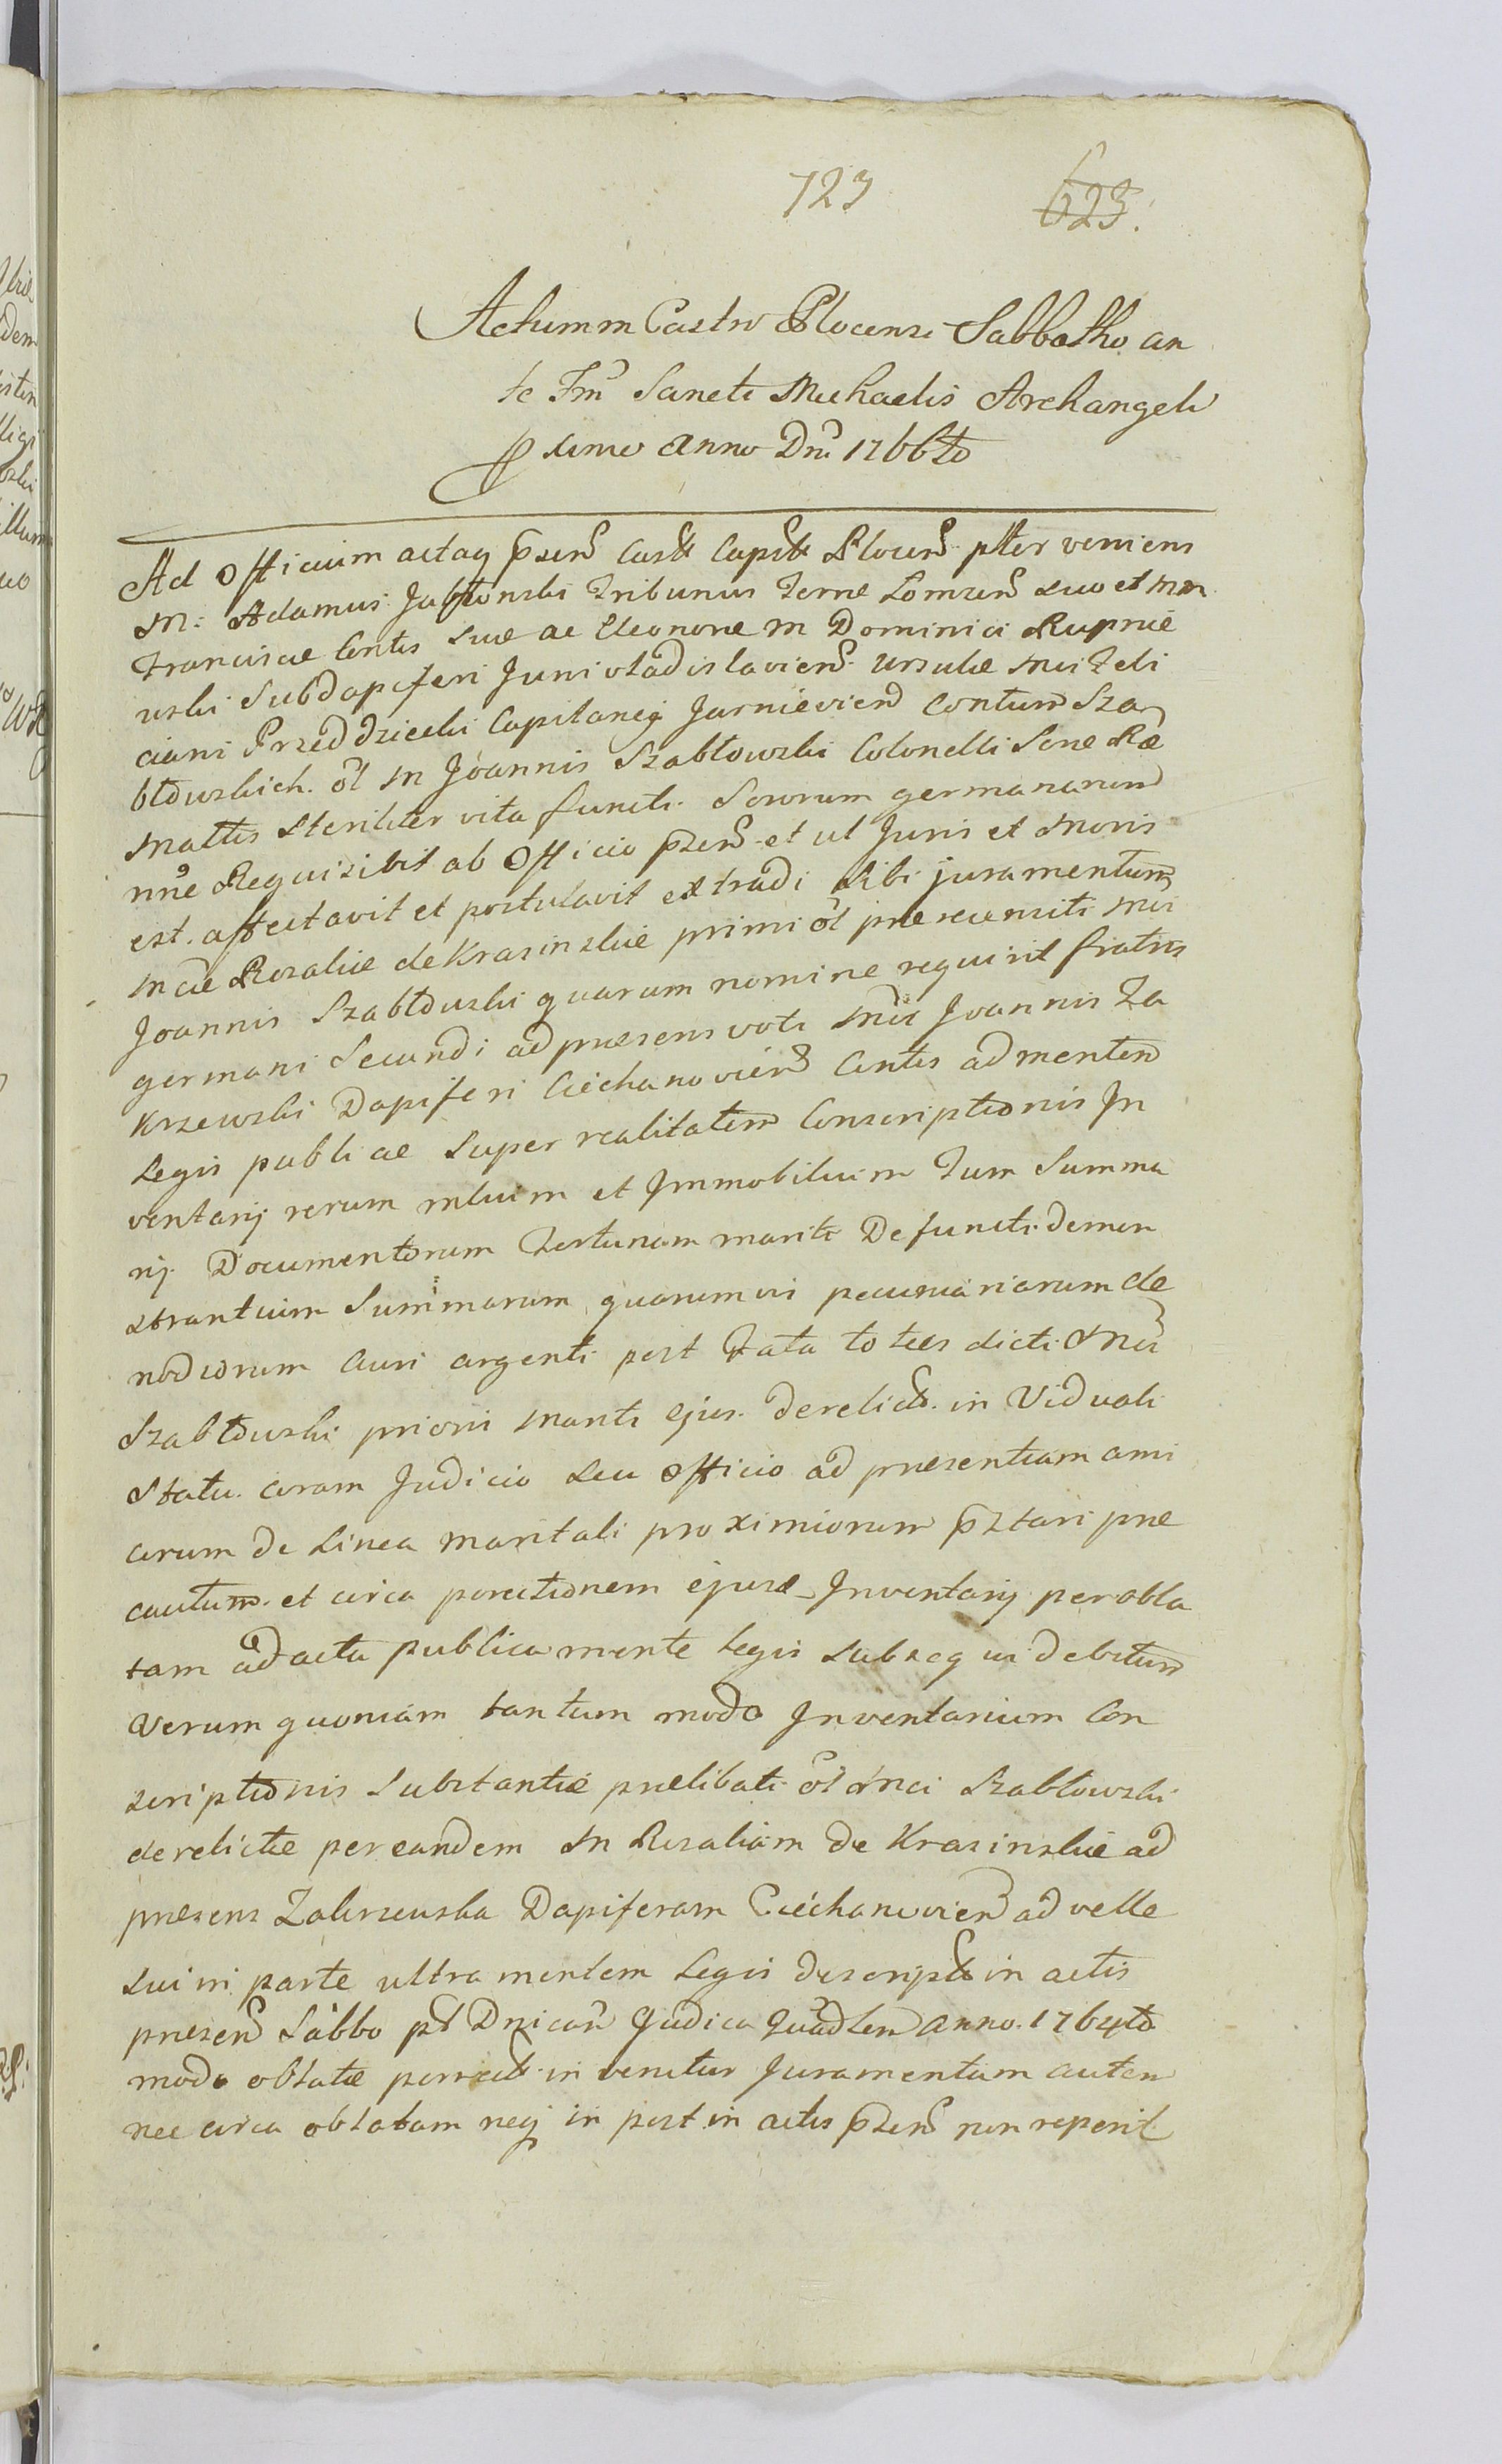 723 623.
Actum in Castro Plocensi Sabbatho an
te Fm̃ Sancti Michaelis Archangeli
pximo Anno Dni 1766to
Ad Officium actaq p̃sen͂ Castr Capit͂ Plocen͂ pltèr veniens
M: Adamus Jabłonski Tribunus Terræ Lomzen͂ suo et MM
Franciscæ Contis suæ ac Eleonoræ M Dominici Rupnie
wski Subdapiferi Junivladislavien͂ Ursulæ Mci Feli
ciani Przeddziecki Capitanei Jarnievien͂ Contum Sza
błowskich. ol M Joannis Szabłowski Colonelli Sere Ræ
Mattis steriliter vita functi. Sororum germanarum
nn͂e Requisivit ab Officio p̃zen͂ et ut Juris et moris
est. affectavit et postulavit extradi sibi juramentum
Mcæ Rosaliæ de Krasinskie primi ol prærecensiti Mci
Joannis Szabłowski quarum nomine requirit fratris
germani Secundi ad præsens voti Mci Joannis Za
krzewski Dapiferi Ciechanovien͂ Contis ad mentem
Legis publicæ super realitatem Conscriptionis In
ventarij rerum mbium et Immobilium Tum Summa
rij Documentorum Fortunam mariti Defuncti demon
strantium Summarum quarumvis pecuniariarum cle
nodiorum Auri argenti post Fata toties dicti Mci
Szabłowski prioris mariti ejus. derelict. in Viduali
Statu. coram Judicio seu Officio ad præsentiam ami
corum de Linea maritali proximiorum p̃ztari præ
cautum. et circa porrectionem ejusd Inventarij per obla
tam ad acta publica mente legis subseq ui debitum
Verum quoniam tantum modo Inventarium Con
scriptionis Substantiæ prælibati ol Mci Szabłowski
derelictæ per eandem M Rosaliam de Krasinskie ad
præsens Zakrzewska Dapiferam Ciechanovien͂ ad velle
sui in parte ultra mentem Legis descript in actis
præsen͂ Sabbo pt Dnicam Judica Quadlem Anno. 1764to
modo oblatæ porrect invenitur Juramentum autem
nec circa oblatam neq in post in actis p̃zen͂ non reperit